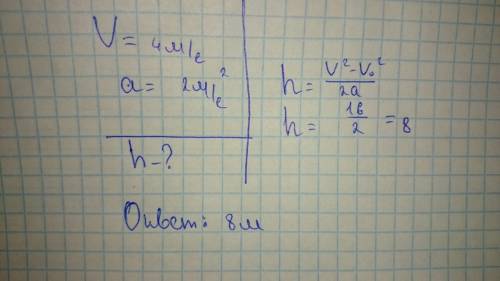 V = 4м/с
a = 2м/с²
h = V² - V₀² / 2a
h = 16 / 2 = 8
h - ?
Ответ: 8м